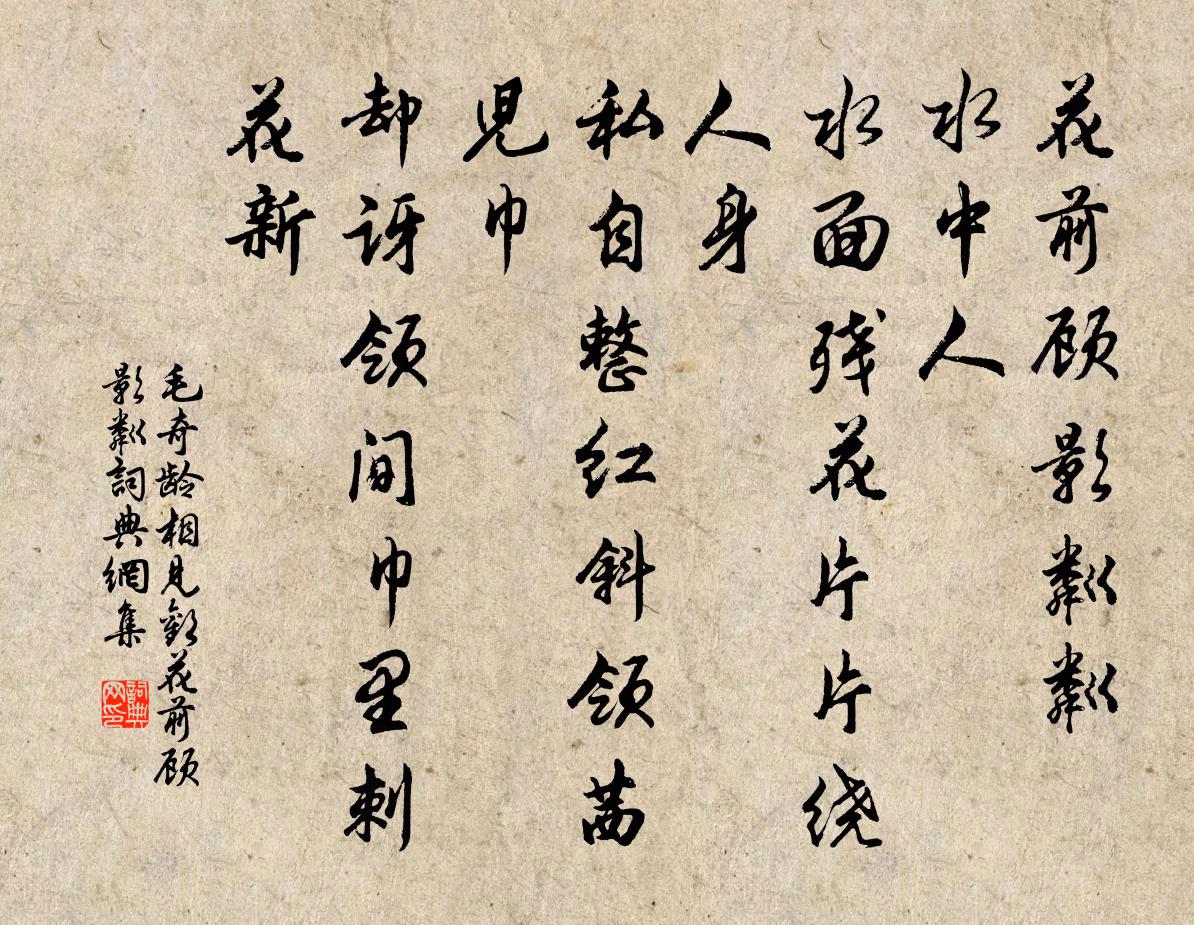 花前顾影粼粼
水中人
水面残花片片绕
人身
私自整红斜领茜
児巾
却讶领间巾里刺
花新
毛奇龄相见歓花前顾
影粼詞典網集
詞典
网印